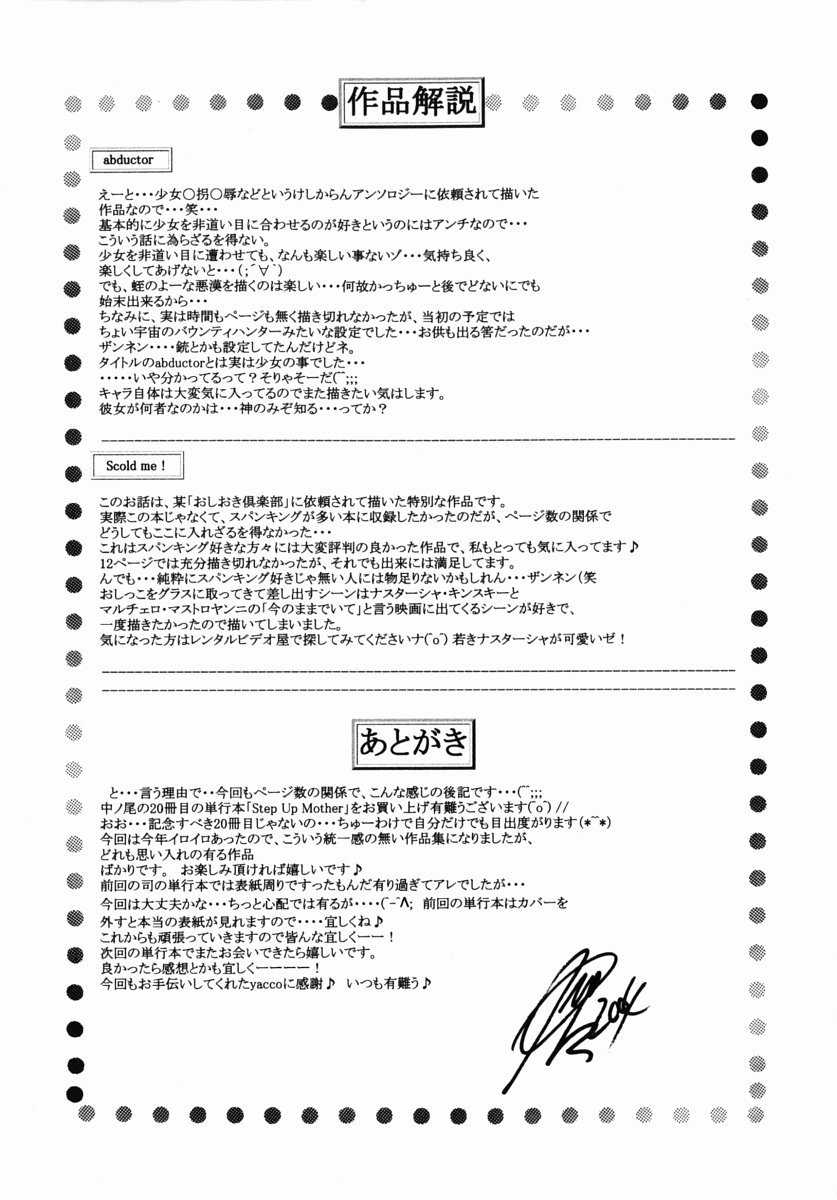 作品解説
abductor
えーと・・・少女〇拐〇辱などというけしからんアンソロジーに依頼されて描いた
作品なので・・・笑・・・
基本的に少女を非道い目に合わせるのが好きというのにはアンチなので・・・
こういう話に為らざるを得ない。
少女を非道い目に遭わせても、なんも楽しい事ないゾ・・・気持ち良く、
楽しくしてあげないと・・・(;´∀`)
でも、蛭のよーな悪漢を描くのは楽しい・・・何故かっちゅーと後でどないにでも
始末出来るから・・・
ちなみに、実は時間もページも無く描き切れなかったが、当初の予定では
ちょい宇宙のバウンティハンターみたいな設定でした・・・お供も出る筈だったのだが・・・
ザンネン・・・・銃とかも設定してたんだけどネ。
タイトルのabductorとは実は少女の事でした・・・
・・・・・いや分かってるって？そりゃそーだ(^^;;;
キャラ自体は大変気に入ってるのでまた描きたい気はします。
彼女が何者なのかは・・・神のみぞ知る・・・ってか？
Scold me !
このお話は、某「おしおき倶楽部」に依頼されて描いた特別な作品です。
実際この本じゃなくて、スパンキングが多い本に収録したかったのだが、ページ数の関係で
どうしてもここに入れざるを得なかった・・・
これはスパンキング好きな方々には大変評判の良かった作品で、私もとっても気に入ってます♪
12ページでは充分描き切れなかったが、それでも出来には満足してます。
んでも・・・純粋にスパンキング好きじゃ無い人には物足りないかもしれん・・・ザンネン(笑
おしっこをグラスに取ってきて差し出すシーンはナスターシャ・キンスキーと
マルチェロ・マストロヤンニの「今のままでいて」と言う映画に出てくるシーンが好きで、
一度描きたかったので描いてしまいました。
気になった方はレンタルビデオ屋で探してみてくださいナ(^o^) 若きナスターシャが可愛いゼ！
あとがき
と・・・言う理由で・・今回もページ数の関係で、こんな感じの後記です・・・(^^;;;
中ノ尾の20冊目の単行本「Step Up Mother」をお買い上げ有難うございます(^o^)//
おお・・・記念すべき20冊目じゃないの・・・ちゅーわけで自分だけでも目出度がります(*^^*)
今回は今年イロイロあったので、こういう統一感の無い作品集になりましたが、
どれも思い入れの有る作品
ばかりです。 お楽しみ頂ければ嬉しいです♪
前回の司の単行本では表紙周りですったもんだ有り過ぎてアレでしたが・・・
今回は大丈夫かな・・・ちっと心配では有るが・・・・(^-^; 前回の単行本はカバーを
外すと本当の表紙が見れますので・・・・宜しくね♪
これからも頑張っていきますので皆んな宜しくーー！
次回の単行本でまたお会いできたら嬉しいです。
良かったら感想とかも宜しくーーーー！
今回もお手伝いしてくれたyaccoに感謝♪ いつも有難う♪
2004